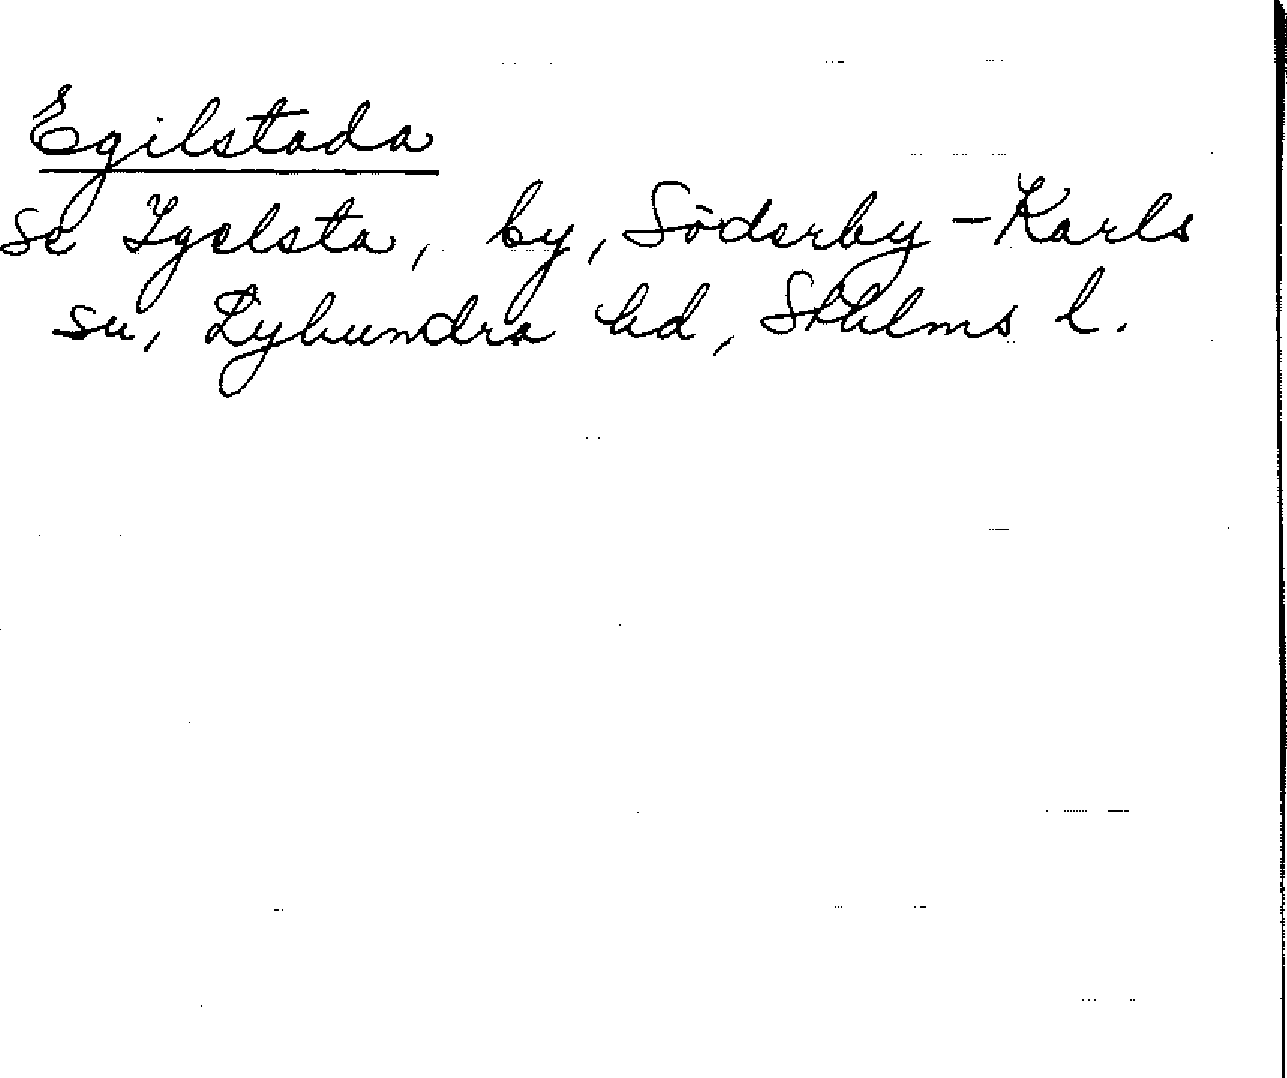 Egilstada
se Igelsta, by, Söderby-Karls
sn, Lyhundra hd, Sthlms l.